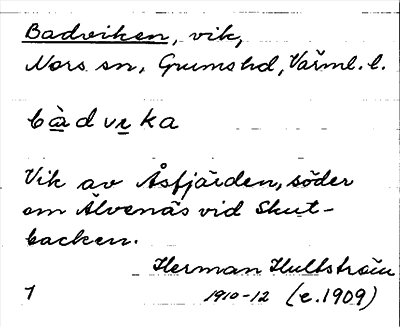 Badviken, vik,
Nors sn, Grums hd, Värml. l.
bàdvɛka
Vik av Åsfjärden, söder
om Älvenäs vid Skut-
backen.
Herman Hultström
1 1910-12 (e. 1909)